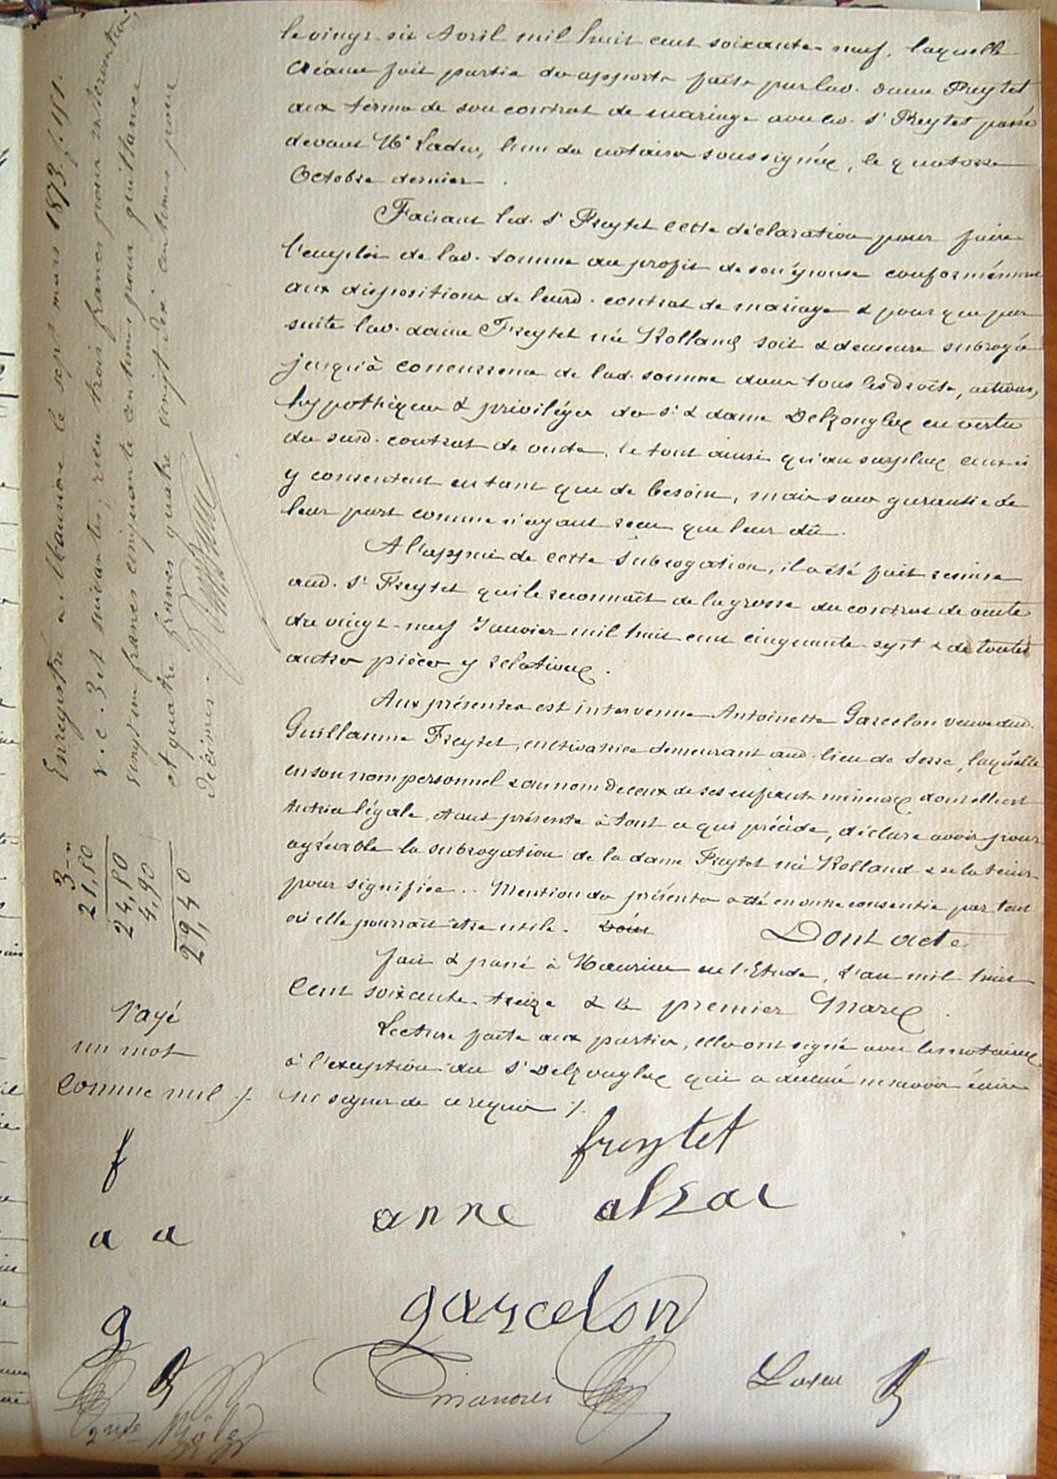 le vingt six Avril mil huit cent soixante neuf, laquelle
créance fait partie des apports faits par lad. dame Freytet
aux termes de son contrat de mariage avec led. Sr Freytet passé
devant Me Laden, l'un des notaires soussignés, le quatorze
Octobre dernier.
Faisant led. Sr Freytet cette déclaration pour faire
l'emploi de lad. somme au profit de son épouse conformément
aux dispositions de leurd. contrat de mariage & pour que par
suite lad. dame Freytet née Rolland soit & demeure subrogée
jusqu'à concurrence de lad. somme dans tous les droits, actions,
hypothèques & privilèges des Sr & dame Delzonglux en vertu
du susd. contrat de vente, le tout ainsi qu'au surplus ceux ci
y consentent en tant que de besoin, mais sans garantie de
leur part comme n'ayant reçu que leur dû.
A l'appui de cette subrogation, il a été fait remise
aud. Sr Freytet qui le reconnaît de la grosse du contrat de vente
du vingt-neuf Janvier mil huit cent cinquante sept & de toutes
autres pièces y relatives.
Aux présentes est intervenue Antoinette Garcelon veuve dud.
Guillaume Freytet, cultivatrice demeurant aud. lieu de Serre, laquelle
en son nom personnel & au nom de ceux de ses enfants mineurs dont elle est
tutrice légale, étant présente à tout ce qui précède, déclare avoir pour
agréable la subrogation de la dame Freytet née Rolland & se la tenir
pour signifiée. Mention des présentes a été en outre consentie partout
où elle pourrait être utile. Dont acte
fait & passé à Mauriac en l'Etude, l'an mil huit
Cent soixante-treize & le premier Mars.
Lecture faite aux parties, elles ont signé avec les notaires
à l'exception du Sr Delzonglux qui a déclaré ne savoir écrire
ni signer de ce requis ./.
freytet
anne alzac
garcelon
Laden
Enregistré à Mauriac le sept mars 1873, f. 181
v. c. 3 et suivantes, reçu trois francs pour intervention
vingt un francs cinquante centimes pour quittance
et quatre francs quatre vingt dix centimes pour
décimes.
3 "
21,80
24,80
4,90
29,40
rayé
un mot
comme nul ./.
f
a a
g